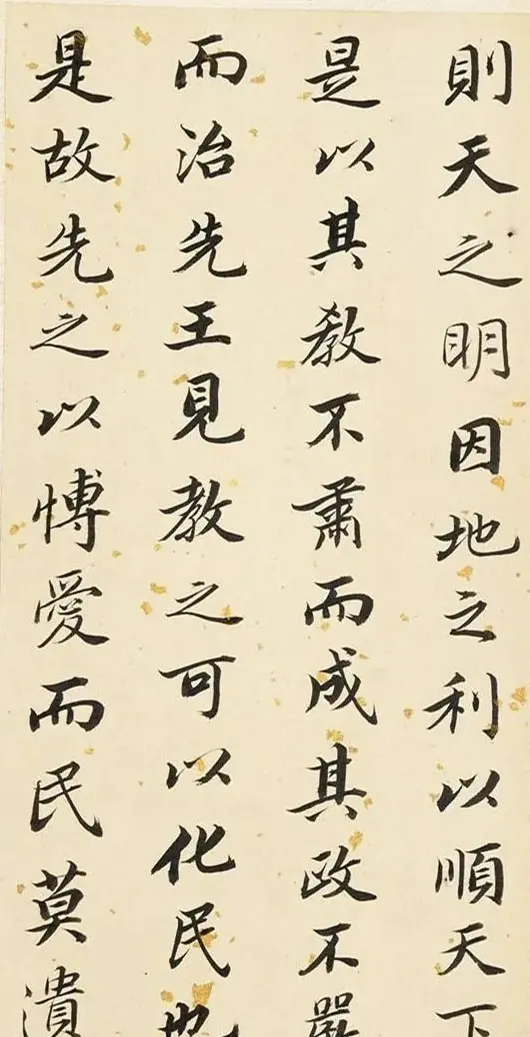 則天之明因地之利以順天下
是以其教不肅而成其政不嚴
而治先王見教之可以化民也
是故先之以博愛而民莫潰